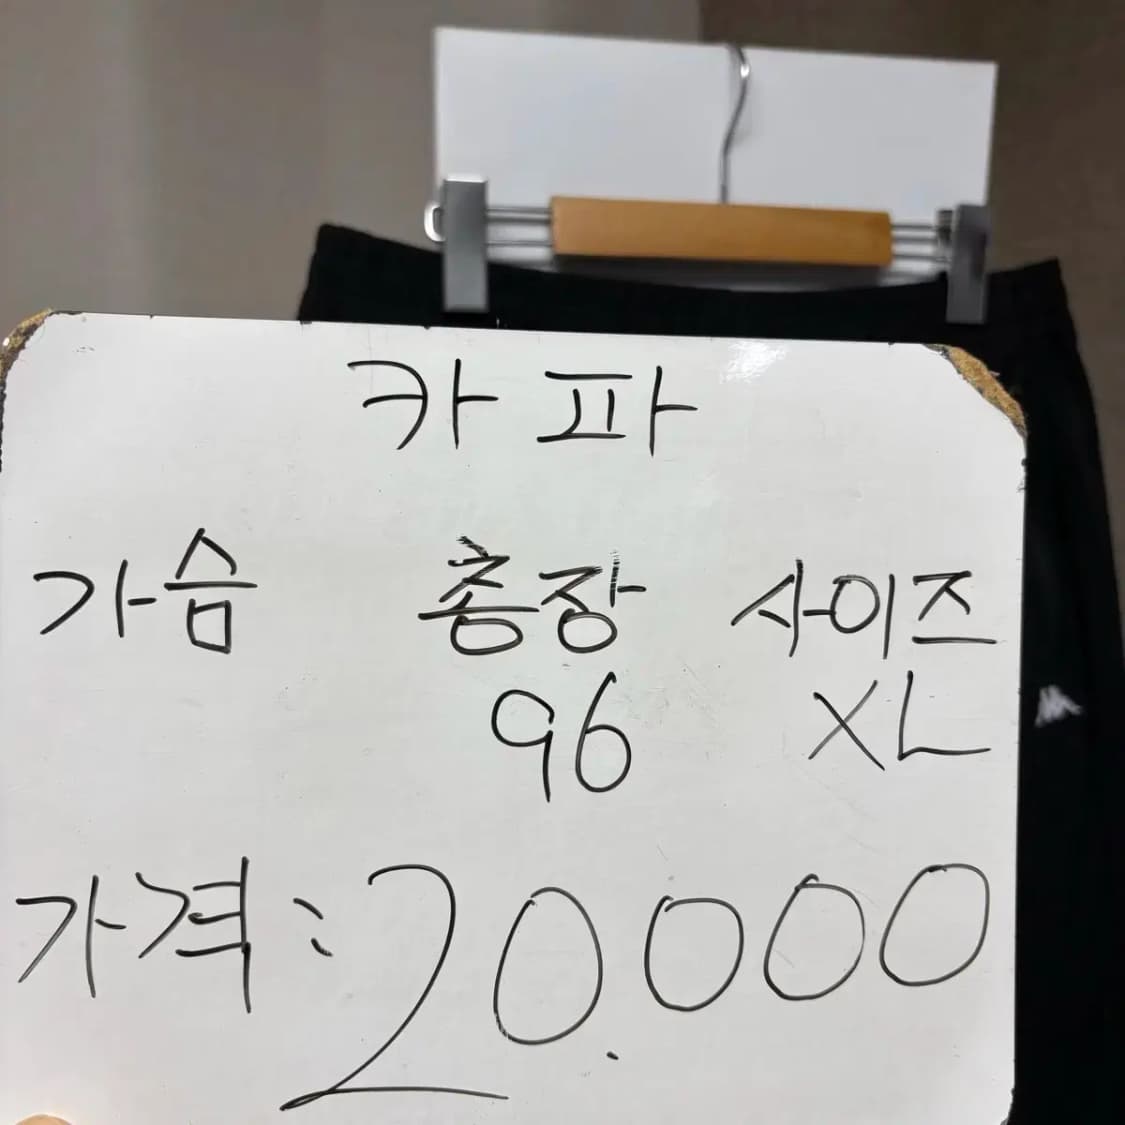 카파
가슴 총장 사이즈
96 XL
가격: 20.000